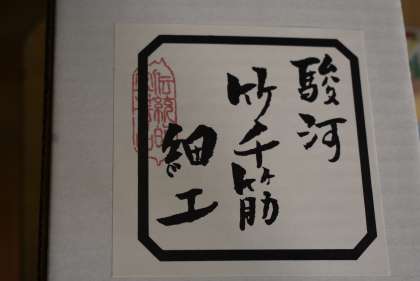 駿河
竹千筋
細工